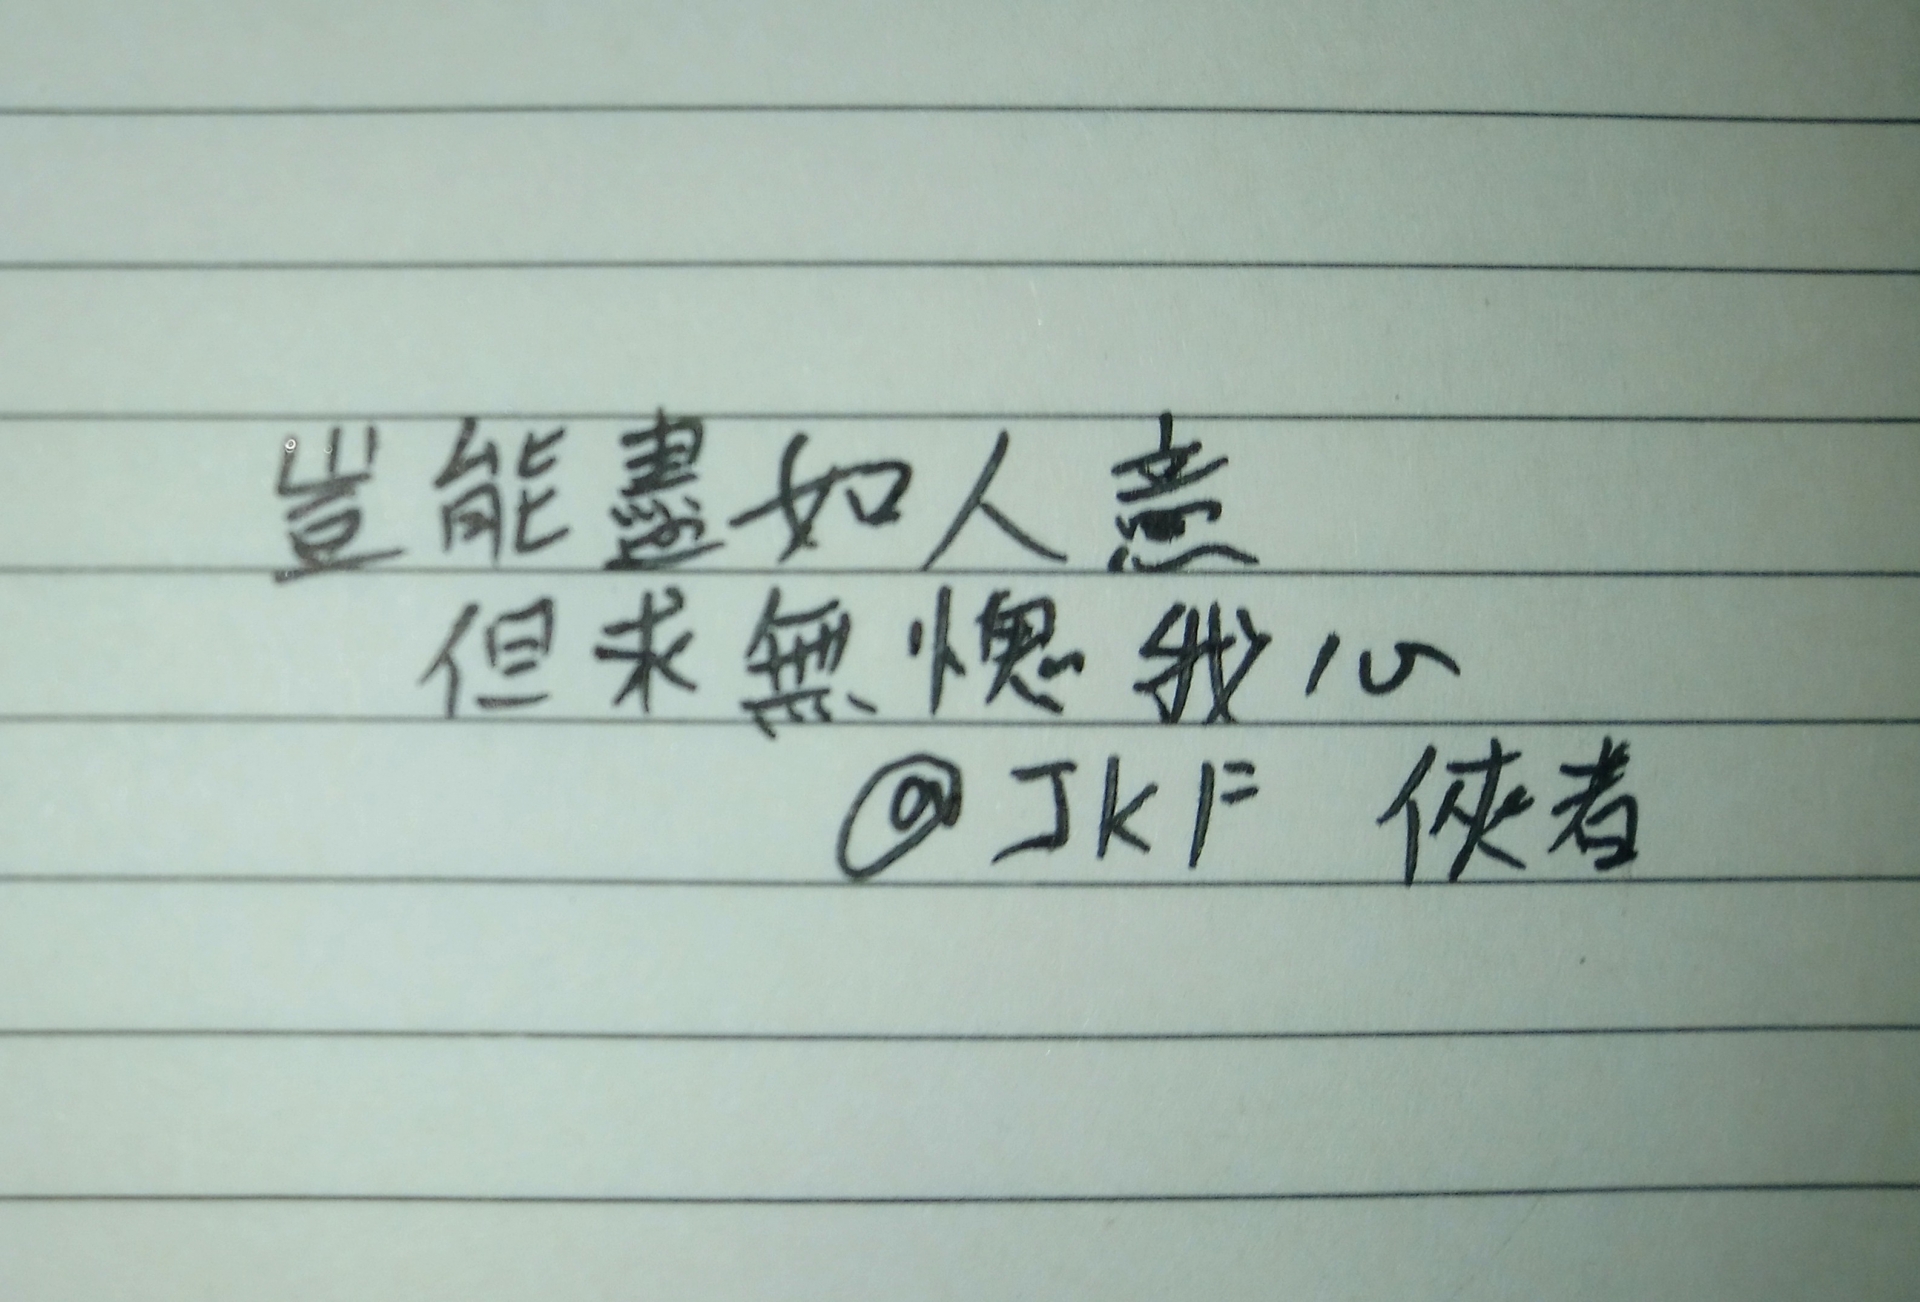 豈能盡如人意
但求無愧我心
@JKF 俠者